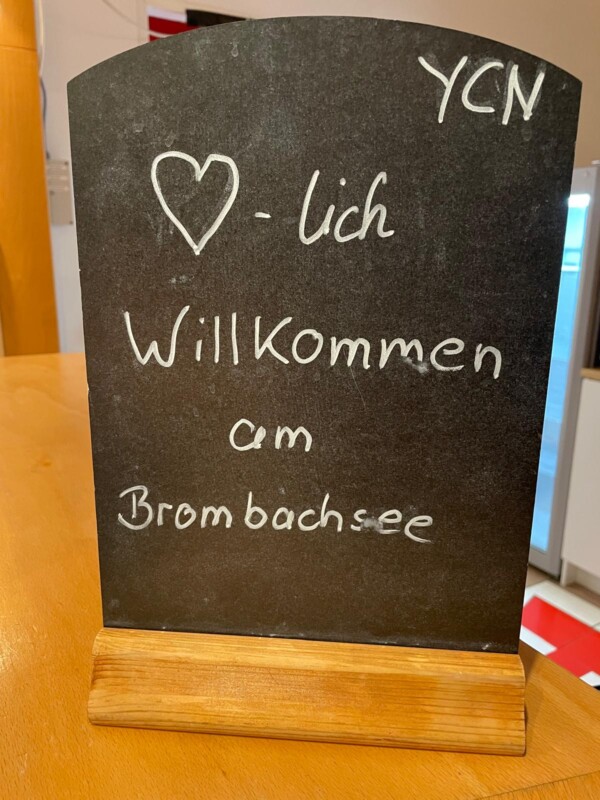 YCN
♡-lich
Willkommen
am
Brombachsee